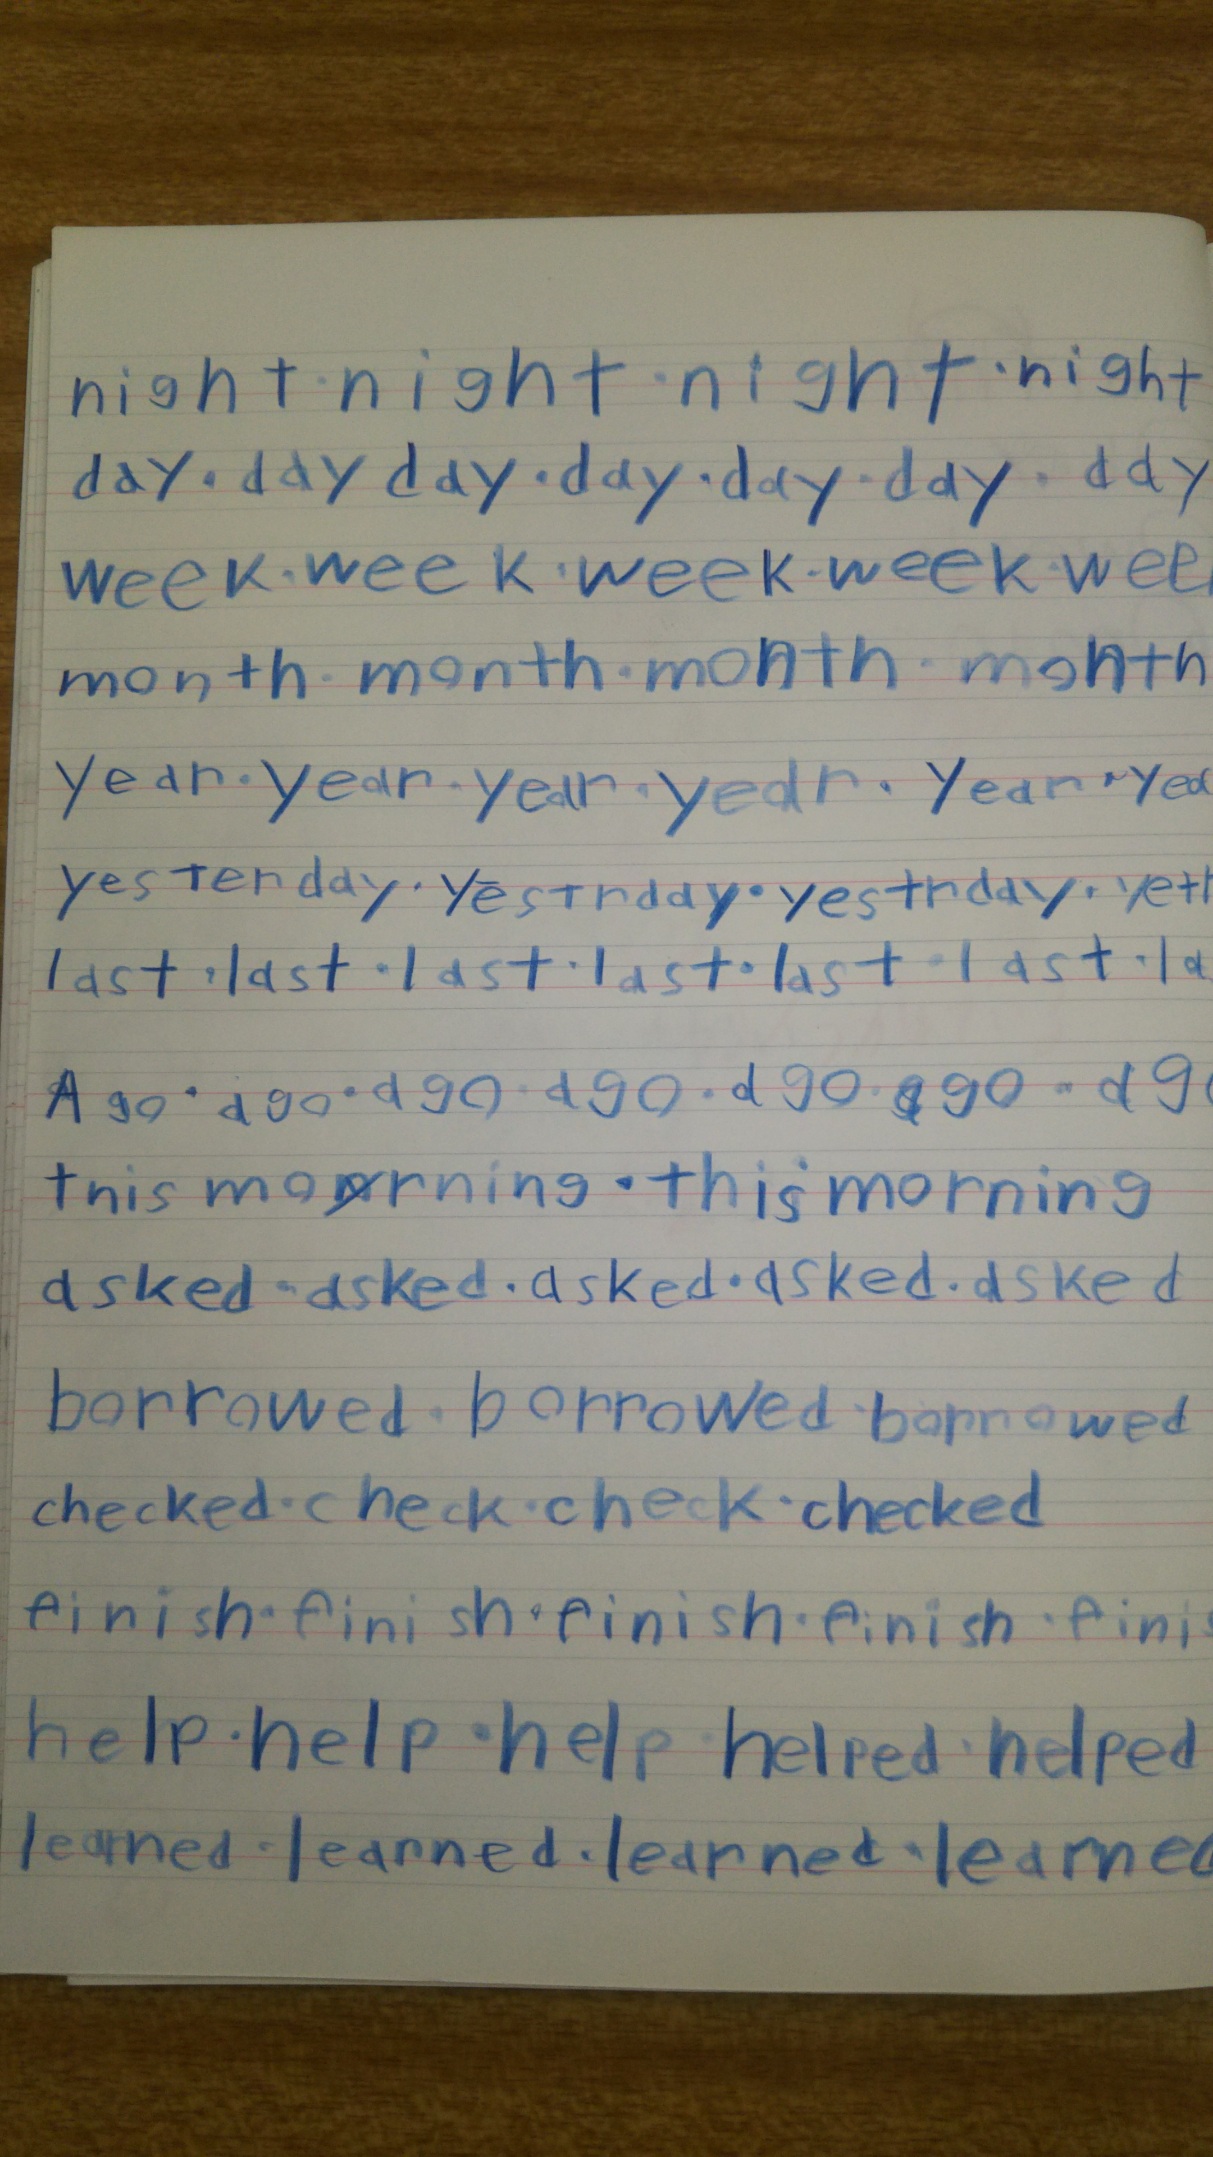 night·night·night·night
day·day day·day·day·day·day
week·week·week·week·wee
month·month·month·month
year·year·year·year·year·yea
yesterday·yestrday·yestrday·
last·last·last·last·last·last·la
Ago·ago·ago·ago·ago·ago·ag
this morning·this morning
asked·asked·asked·asked·asked
borrowed·borrowed·borrowed
checked·check·check·checked
finish·finish·finish·finish·finis
help·help·help·helped·helped
learned·learned·learned·learned